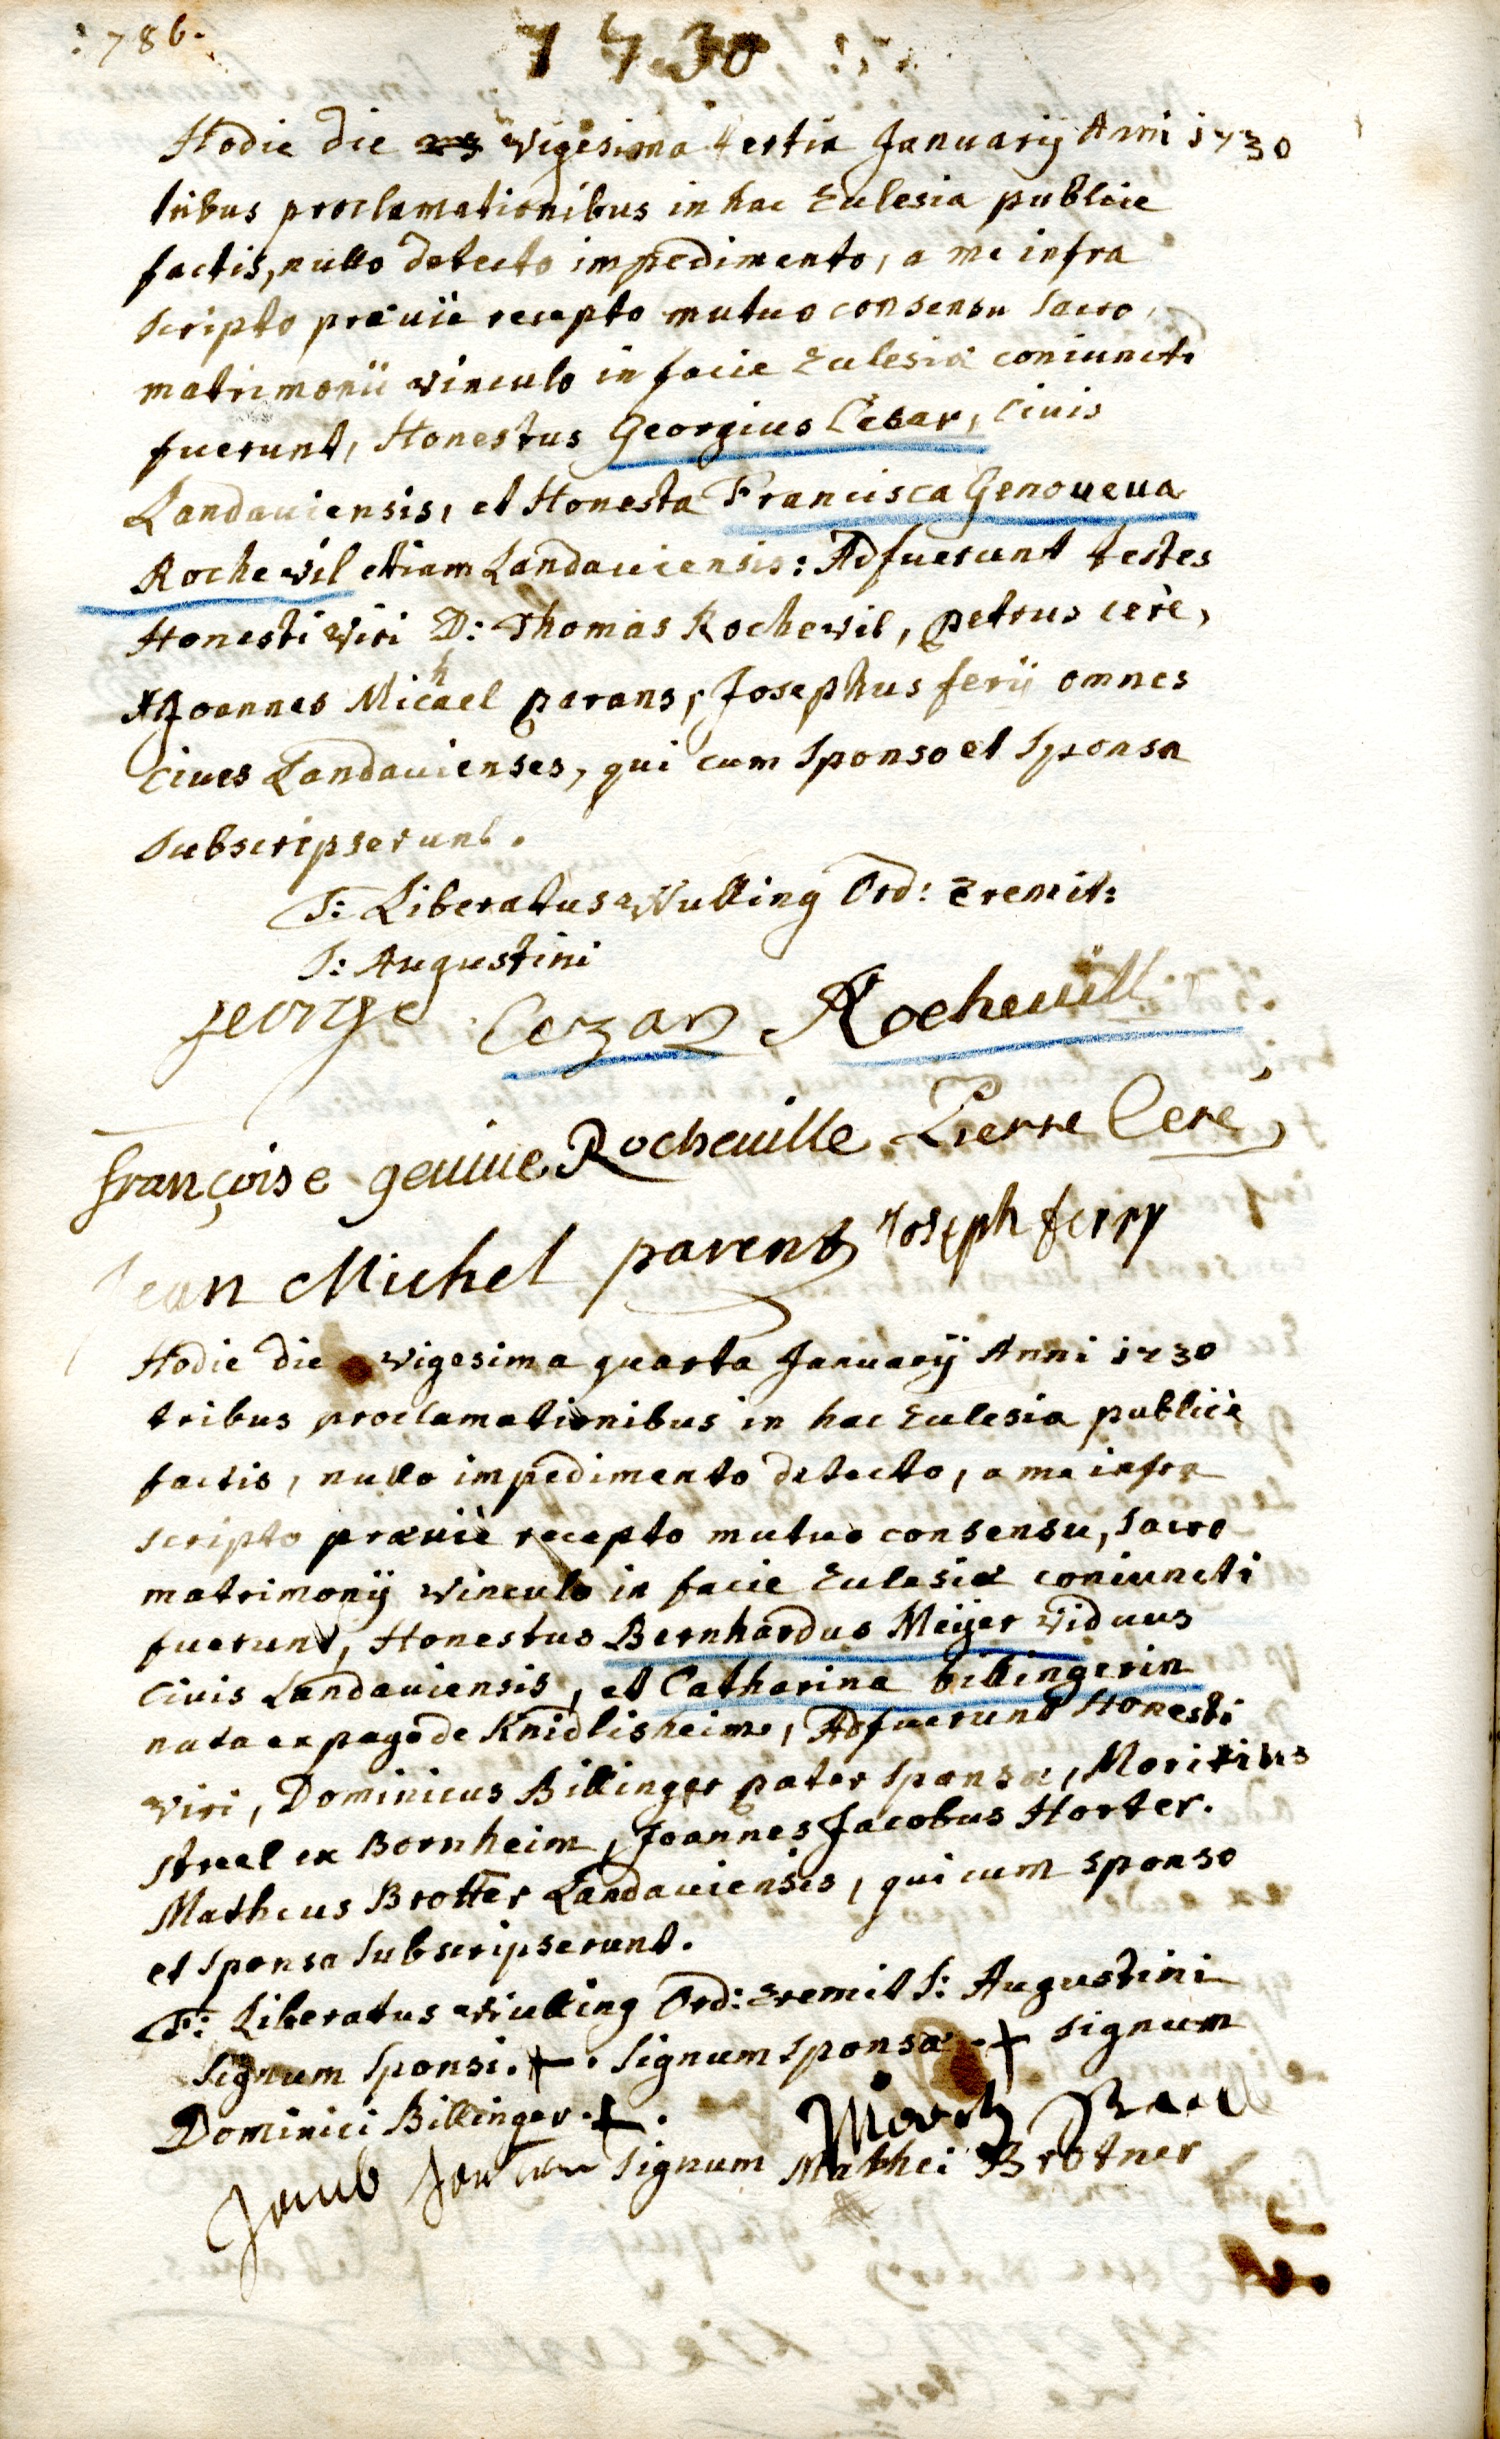 : 786.
1730
Hodie die vigesima tertia Januarij Anni 1730
tribus proclamationibus in hac Eclesia publice
factis, nullo detecto impedimento, a me infra
scripto præuiè recepto mutuo consensu sacro
matrimonii vinculo in facie Eclesiæ coniuncti
fuerunt, Honestus Georgius Cesar, Ciuis
Landauiensis, et Honesta Francisca Genoueua
Rochevil etiam Landauiensis: Adfuerunt testes
Honesti viri D: Thomas Rochevil, petrus cerè,
Joannes Michael parans, Josephus ferij omnes
Ciues Landauienses, qui cum Sponso et Sponsa
Subscripserunt.
F: Liberatus Wulling Ord: Eremit:
S: Augustini
george Cezar Rocheuill
françoise geuiue Rocheuille Pierre Ceré
Jean Michel parent Joseph ferry
Hodie die vigesima quarta Januarij Anni 1730
tribus proclamationibus in hac Eclesia publicè
factis, nullo impedimento detecto, a me infra
scripto præuiè recepto mutuo consensu, sacro
matrimonij vinculo in facie Eclesiæ coniuncti
fuerunt, Honestus Bernhardus Meijer viduus
Ciuis Landauiensis, et Catharina billingerin
nata ex pago de Knidlisheim, Adfuerunt Honesti
viri, Dominicus Billinger pater Sponsæ, Moritius
streel ex Bornheim, Joannes Jacobus Horter.
Matheus Brotter Landauiensis, qui cum sponso
et Sponsa Subscripserunt.
F: Liberatus Wulling Ord: Eremit S: Augustini
Signum Sponsi. + . Signum Sponsæ . + Signum
Dominici Billinger . + . Moritz
Jacub Signum Mathei Brotner